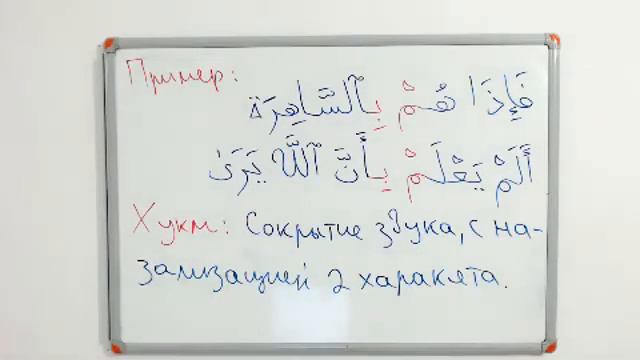 Пример:
فَإِذَا هُمْ بِٱلسَّاهِرَةِ
أَلَمْ يَعْلَمْ بِأَنَّ ٱللَّهَ يَرَىٰ
Хукм: Сокрытие звука, с на-
зализацией 2 харакята.